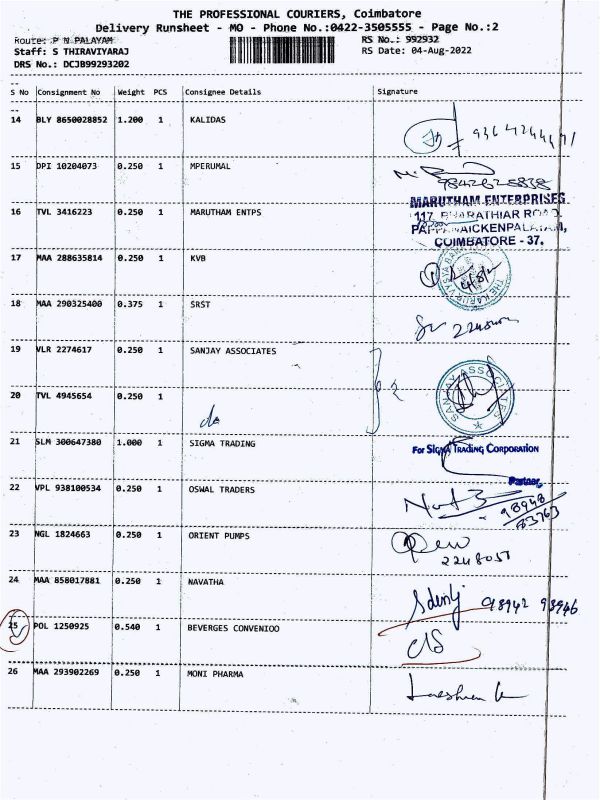 THE PROFESSIONAL COURIERS, Coimbatore
Delivery Runsheet - MO - Phone No.:0422-3505555 - Page No.:2
Route: P N PALAYAM RS No.: 992932
Staff: S THIRAVIYARAJ RS Date: 04-Aug-2022
DRS No.: DCJB99293202
S No Consignment No Weight PCS Consignee Details Signature
14 BLY 8650028852 1.200 1 KALIDAS
15 DPI 10204073 0.250 1 MPERUMAL
16 TVL 3416223 0.250 1 MARUTHAM ENTPS
MARUTHAM ENTERPRISES
117, BHARATHIAR ROAD,
PAPPANAICKENPALAYAM,
COIMBATORE - 37.
17 MAA 288635814 0.250 1 KVB
18 MAA 290325400 0.375 1 SRST
19 VLR 2274617 0.250 1 SANJAY ASSOCIATES
SANJAY ASSOCIATES
20 TVL 4945654 0.250 1
do
21 SLM 300647380 1.000 1 SIGMA TRADING
For SIGMA TRADING CORPORATION
Partner
22 VPL 938100534 0.250 1 OSWAL TRADERS
23 NGL 1824663 0.250 1 ORIENT PUMPS
2248051
24 MAA 858017881 0.250 1 NAVATHA
98942 93946
25 POL 1250925 0.540 1 BEVERGES CONVENIOO
26 MAA 293902269 0.250 1 MONI PHARMA